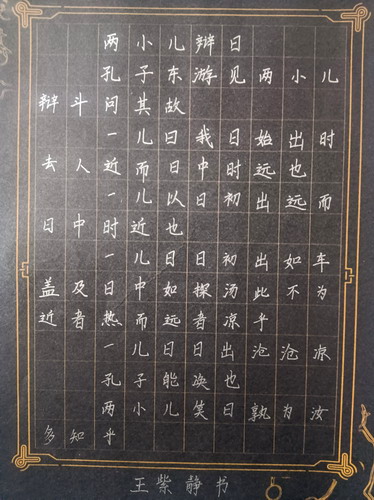 两小儿辩日
孔子东游见两小儿
辩斗问其故
一儿曰我日始出时
去人近而日中时远也
一儿以日初出远而
日中时近也
一儿曰日初出如车
盖及日中如探汤此不为
近者热而远者凉乎
一儿曰日出沧沧凉
孔子能决也
两小儿笑曰孰为汝
多知乎
王紫静书